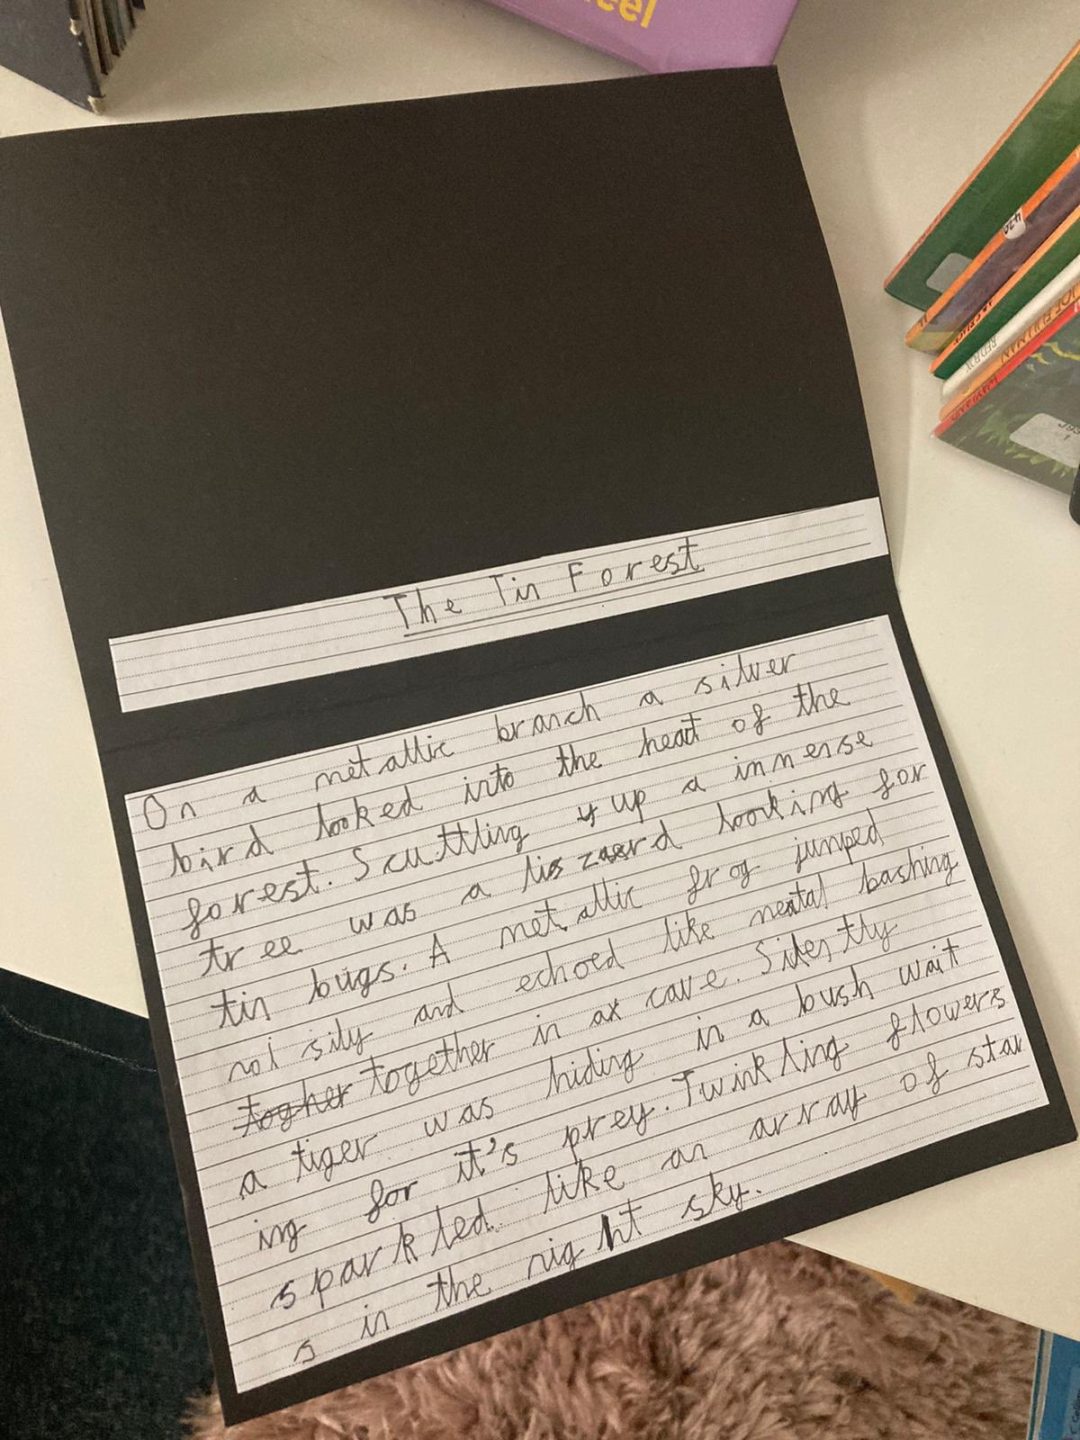 eel
The Tin Forest
On a metallic branch a silver
bird looked into the heart of the
forest. Scuttling up a innerse
tree was a lizzard looking for
tin bugs. A metallic frog jumped
noisily and echoed like metal bashing
togher together in a cave. Silently
a tiger was hiding in a bush wait
ing for it's prey. Twinkling flowers
sparkled like an array of star
s in the night sky.